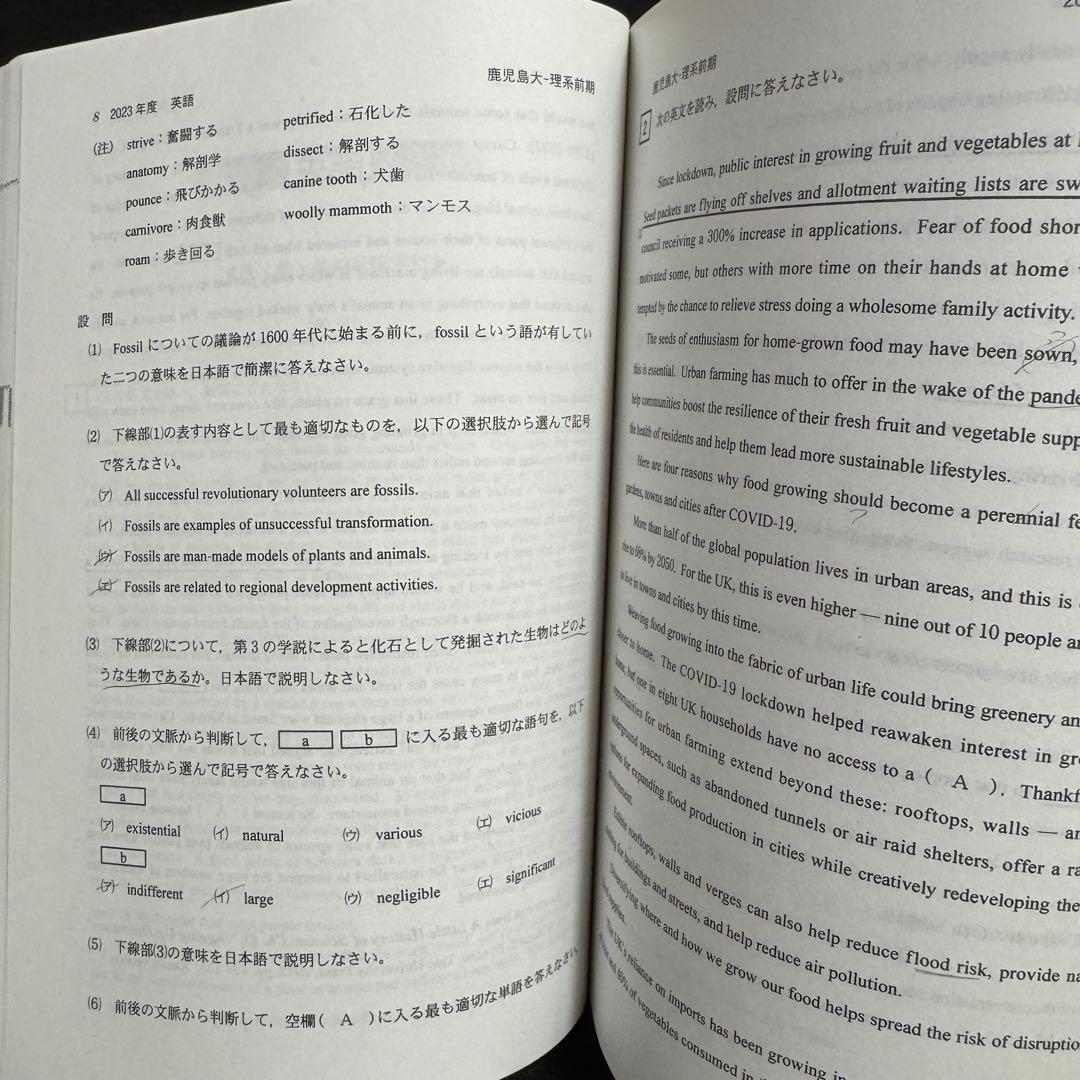 8 2023年度 英語
鹿児島大-理系前期
(注) strive：奮闘する
petrified：石化した
anatomy：解剖学
dissect：解剖する
pounce：飛びかかる
canine tooth：犬歯
carnivore：肉食獣
woolly mammoth：マンモス
roam：歩き回る
設 問
(1) Fossil についての議論が 1600 年代に始まる前に，fossil という語が有してい
た二つの意味を日本語で簡潔に答えなさい。
(2) 下線部(1)の表す内容として最も適切なものを，以下の選択肢から選んで記号
で答えなさい。
(ア) All successful revolutionary volunteers are fossils.
(イ) Fossils are examples of unsuccessful transformation.
(ウ) Fossils are man-made models of plants and animals.
(エ) Fossils are related to regional development activities.
(3) 下線部(2)について，第3の学説によると化石として発掘された生物はどのよ
うな生物であるか。日本語で説明しなさい。
(4) 前後の文脈から判断して， a b に入る最も適切な語句を，以下
の選択肢から選んで記号で答えなさい。
a
(ア) existential (イ) natural (ウ) various (エ) vicious
b
(ア) indifferent (イ) large (ウ) negligible (エ) significant
(5) 下線部(3)の意味を日本語で説明しなさい。
(6) 前後の文脈から判断して，空欄( A )に入る最も適切な単語を答えなさい。
鹿児島大-理系前期
2 次の英文を読み，設問に答えなさい。
Since lockdown, public interest in growing fruit and vegetables at
Seed packets are flying off shelves and allotment waiting lists are
council receiving a 300% increase in applications. Fear of food
motivated some, but others with more time on their hands at home
tempted by the chance to relieve stress doing a wholesome family activity.
The seeds of enthusiasm for home-grown food may have been sown,
this is essential. Urban farming has much to offer in the wake of the
help communities boost the resilience of their fresh fruit and vegetable
the health of residents and help them lead more sustainable lifestyles.
Here are four reasons why food growing should become a perennial
gardens, towns and cities after COVID-19.
More than half of the global population lives in urban areas, and this is
rise to 66% by 2050. For the UK, this is even higher — nine out of 10 people
to live in towns and cities by this time.
Weaving food growing into the fabric of urban life could bring greenery
closer to home. The COVID-19 lockdown helped reawaken interest in
home, but one in eight UK households have no access to a ( A ).
opportunities for urban farming extend beyond these: rooftops, walls —
underground spaces, such as abandoned tunnels or air raid shelters, offer a
options for expanding food production in cities while creatively redeveloping the
environment.
Edible rooftops, walls and verges can also help reduce flood risk, provide
cooling for buildings and streets, and help reduce air pollution.
Diversifying where and how we grow our food helps spread the risk of
food supplies.
The UK's reliance on imports has been growing in
of fruit and 46% of vegetables consumed in